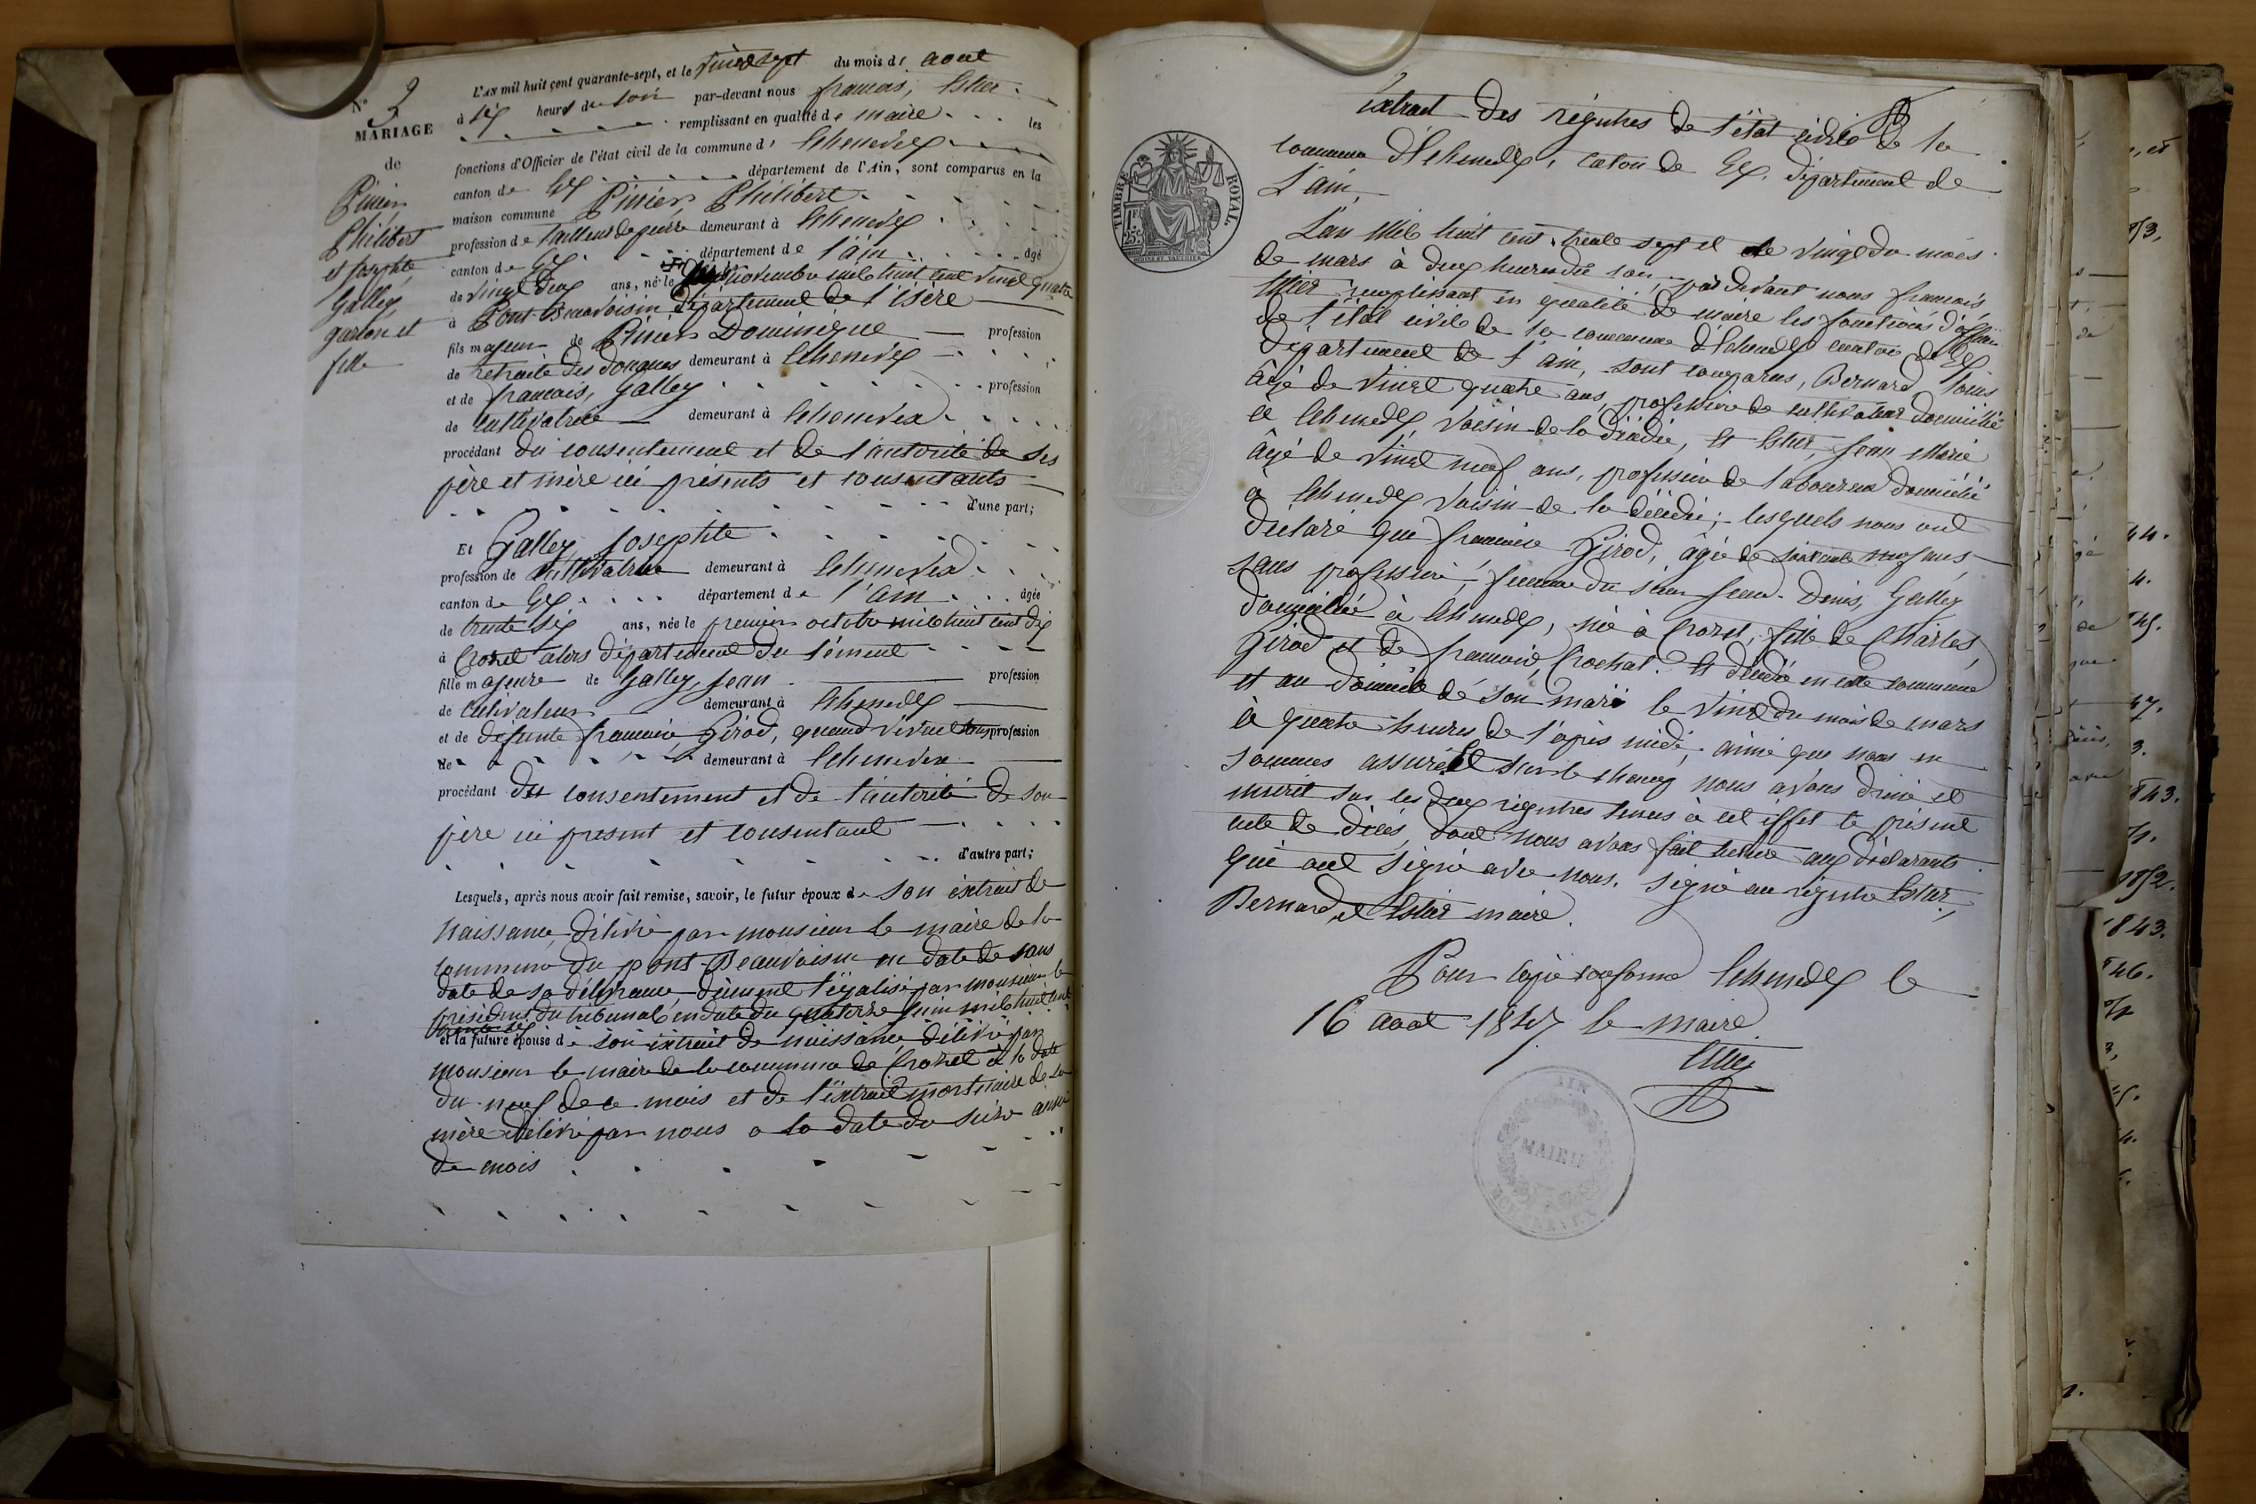 N° 3
MARIAGE
de
Pinier
Philibert
et Josephte
Galley
garçon et
fille
L'AN mil huit cent quarante-sept, et le vingt sept du mois d' aout
à six heures du soir par-devant nous françois, Estier
remplissant en qualité de maire les
fonctions d'Officier de l'état civil de la commune d' Echenevex
canton de Gex département de l'Ain, sont comparus en la
maison commune Pinier, Philibert
profession de tailleur de pierre demeurant à Echenevex
canton de Gex département de l'ain âgé
de vingt deux ans, né le novembre mil huit cent vingt quatre
à Pont Beauvoisin département de l'isère
fils majeur de Pinier Dominique profession
de retraité des douanes demeurant à Echenevex
et de françoise, Galley profession
de cultivatrice demeurant à Echenevex
procédant du consentement et de l'autorité de ses
père et mère ici présents et consentants
d'une part;
Et Galley Josephte
profession de cultivatrice demeurant à Echenevex
canton de Gex département de l'ain âgée
de trente six ans, née le premier octobre mil huit cent dix
à Crozet alors département du Lément
fille majeure de Galley, Jean profession
de cultivateur demeurant à Echenevex
et de défunte françoise, Girod, quand vivait sans profession
de demeurant à Echenevex
procédant du consentement et de l'autorité de son
père ici présent et consentant
d'autre part;
Lesquels, après nous avoir fait remise, savoir, le futur époux de son extrait de
naissance, délivré par monsieur le maire de la
commune du pont-Beauvoisin en date de sans
date de sa délivrance, dûment légalisé par monsieur le
président du tribunal en date du quatorze juin mil huit cent
trente six
et la future épouse de son extrait de naissance délivré par
monsieur le maire de la commune de Crozet à la date
du neuf de ce mois et de l'extrait mortuaire de sa
mère délivré par nous a la date du seize aussi
de mois
Extrait des régitres de l'état civil de la
commune d'Echenevex, canton de Gex, département de
L'ain
TIMBRE ROYAL
L'an mil huit cent trente sept et le vingt du mois
de mars à deux heures du soir, par devant nous françois
Estier remplissant en qualité de maire les fonctions d'officier
de l'état civil de la commune d'Echenevex canton de Gex
département de l'ain, sont comparus, Bernard, Louis
âgé de vingt quatre ans, profession de cultivateur domicilié
à Echenevex, voisin de la décédée, et Estier, Jean Marie
âgé de vingt neuf ans, profession de laboureur domicilié
à Echenevex voisin de la décédée; lesquels nous ont
déclaré que françoise Girod, âgée de soixante neuf ans
sans profession, femme du sieur Jean Denis, Galley
domiciliée à Echenevex, née à Crozet, fille de Charles,
Girod et de françoise, Crochat. Est décédée en cette commune
et au domicile de son mari le vingt du mois de mars
à quatre heures de l'après midi, ainsi que nous en
sommes assuré Et sur le champ nous avons dressé et
inscrit sur les deux régitres tenus à cet effet le présent
acte de décès, dont nous avons fait lecture aux déclarants
qui ont signé avec nous. Signé au régitre Estier,
Bernard, et Estier maire.
Pour copie conforme Echenevex le
16 aout 1847 le maire
Estier
AIN
MAIRIE